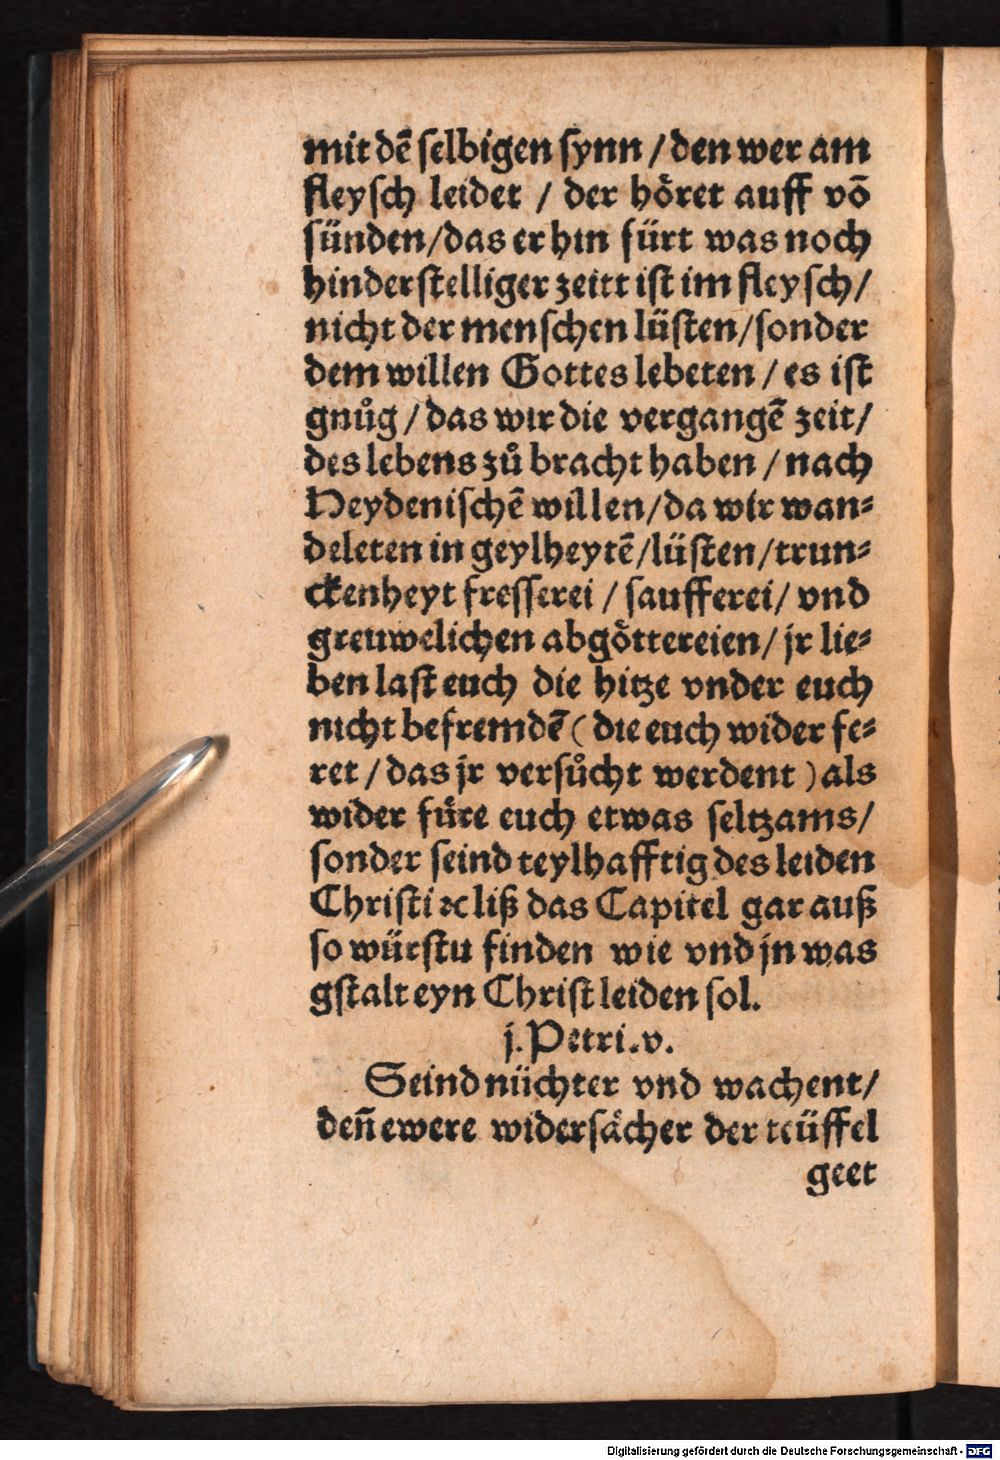 mit dē ſelbigen ſynn / den wer am
fleyſch leidet / der hoͤret auff vō
ſünden/das er hin fürt was noch
hinderſtelliger zeitt iſt im fleyſch/
nicht der menſchen lüſten/ſonder
dem willen Gottes lebeten / es iſt
gnuͦg / das wir die vergangē zeit/
des lebens zuͦ bracht haben / nach
Heydeniſchē willen/da wir wan⸗
deleten in geylheytē/lüſten/trun⸗
ckenheyt freſſerei / ſaufferei/ vnd
greuwelichen abgoͤttereien/ jr lie⸗
ben laſt euch die hitze vnder euch
nicht befremdē ( die euch wider fe⸗
ret / das jr verſuͦcht werdent ) als
wider fuͤre euch etwas ſeltzams/
ſonder ſeind teylhafftig des leiden
Chriſti ⁊c liß das Capitel gar auß
ſo würſtu finden wie vnd jn was
gſtalt eyn Chriſt leiden ſol.
j. Petri. v.
Seind nüchter vnd wachent/
deñ ewere widerſaͤcher der teüffel
geet
Digitalisierung gefördert durch die Deutsche Forschungsgemeinschaft - DFG